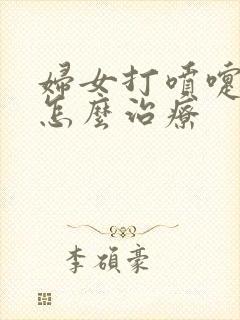 婦女打噴嚏
怎麼治療
李碩豪